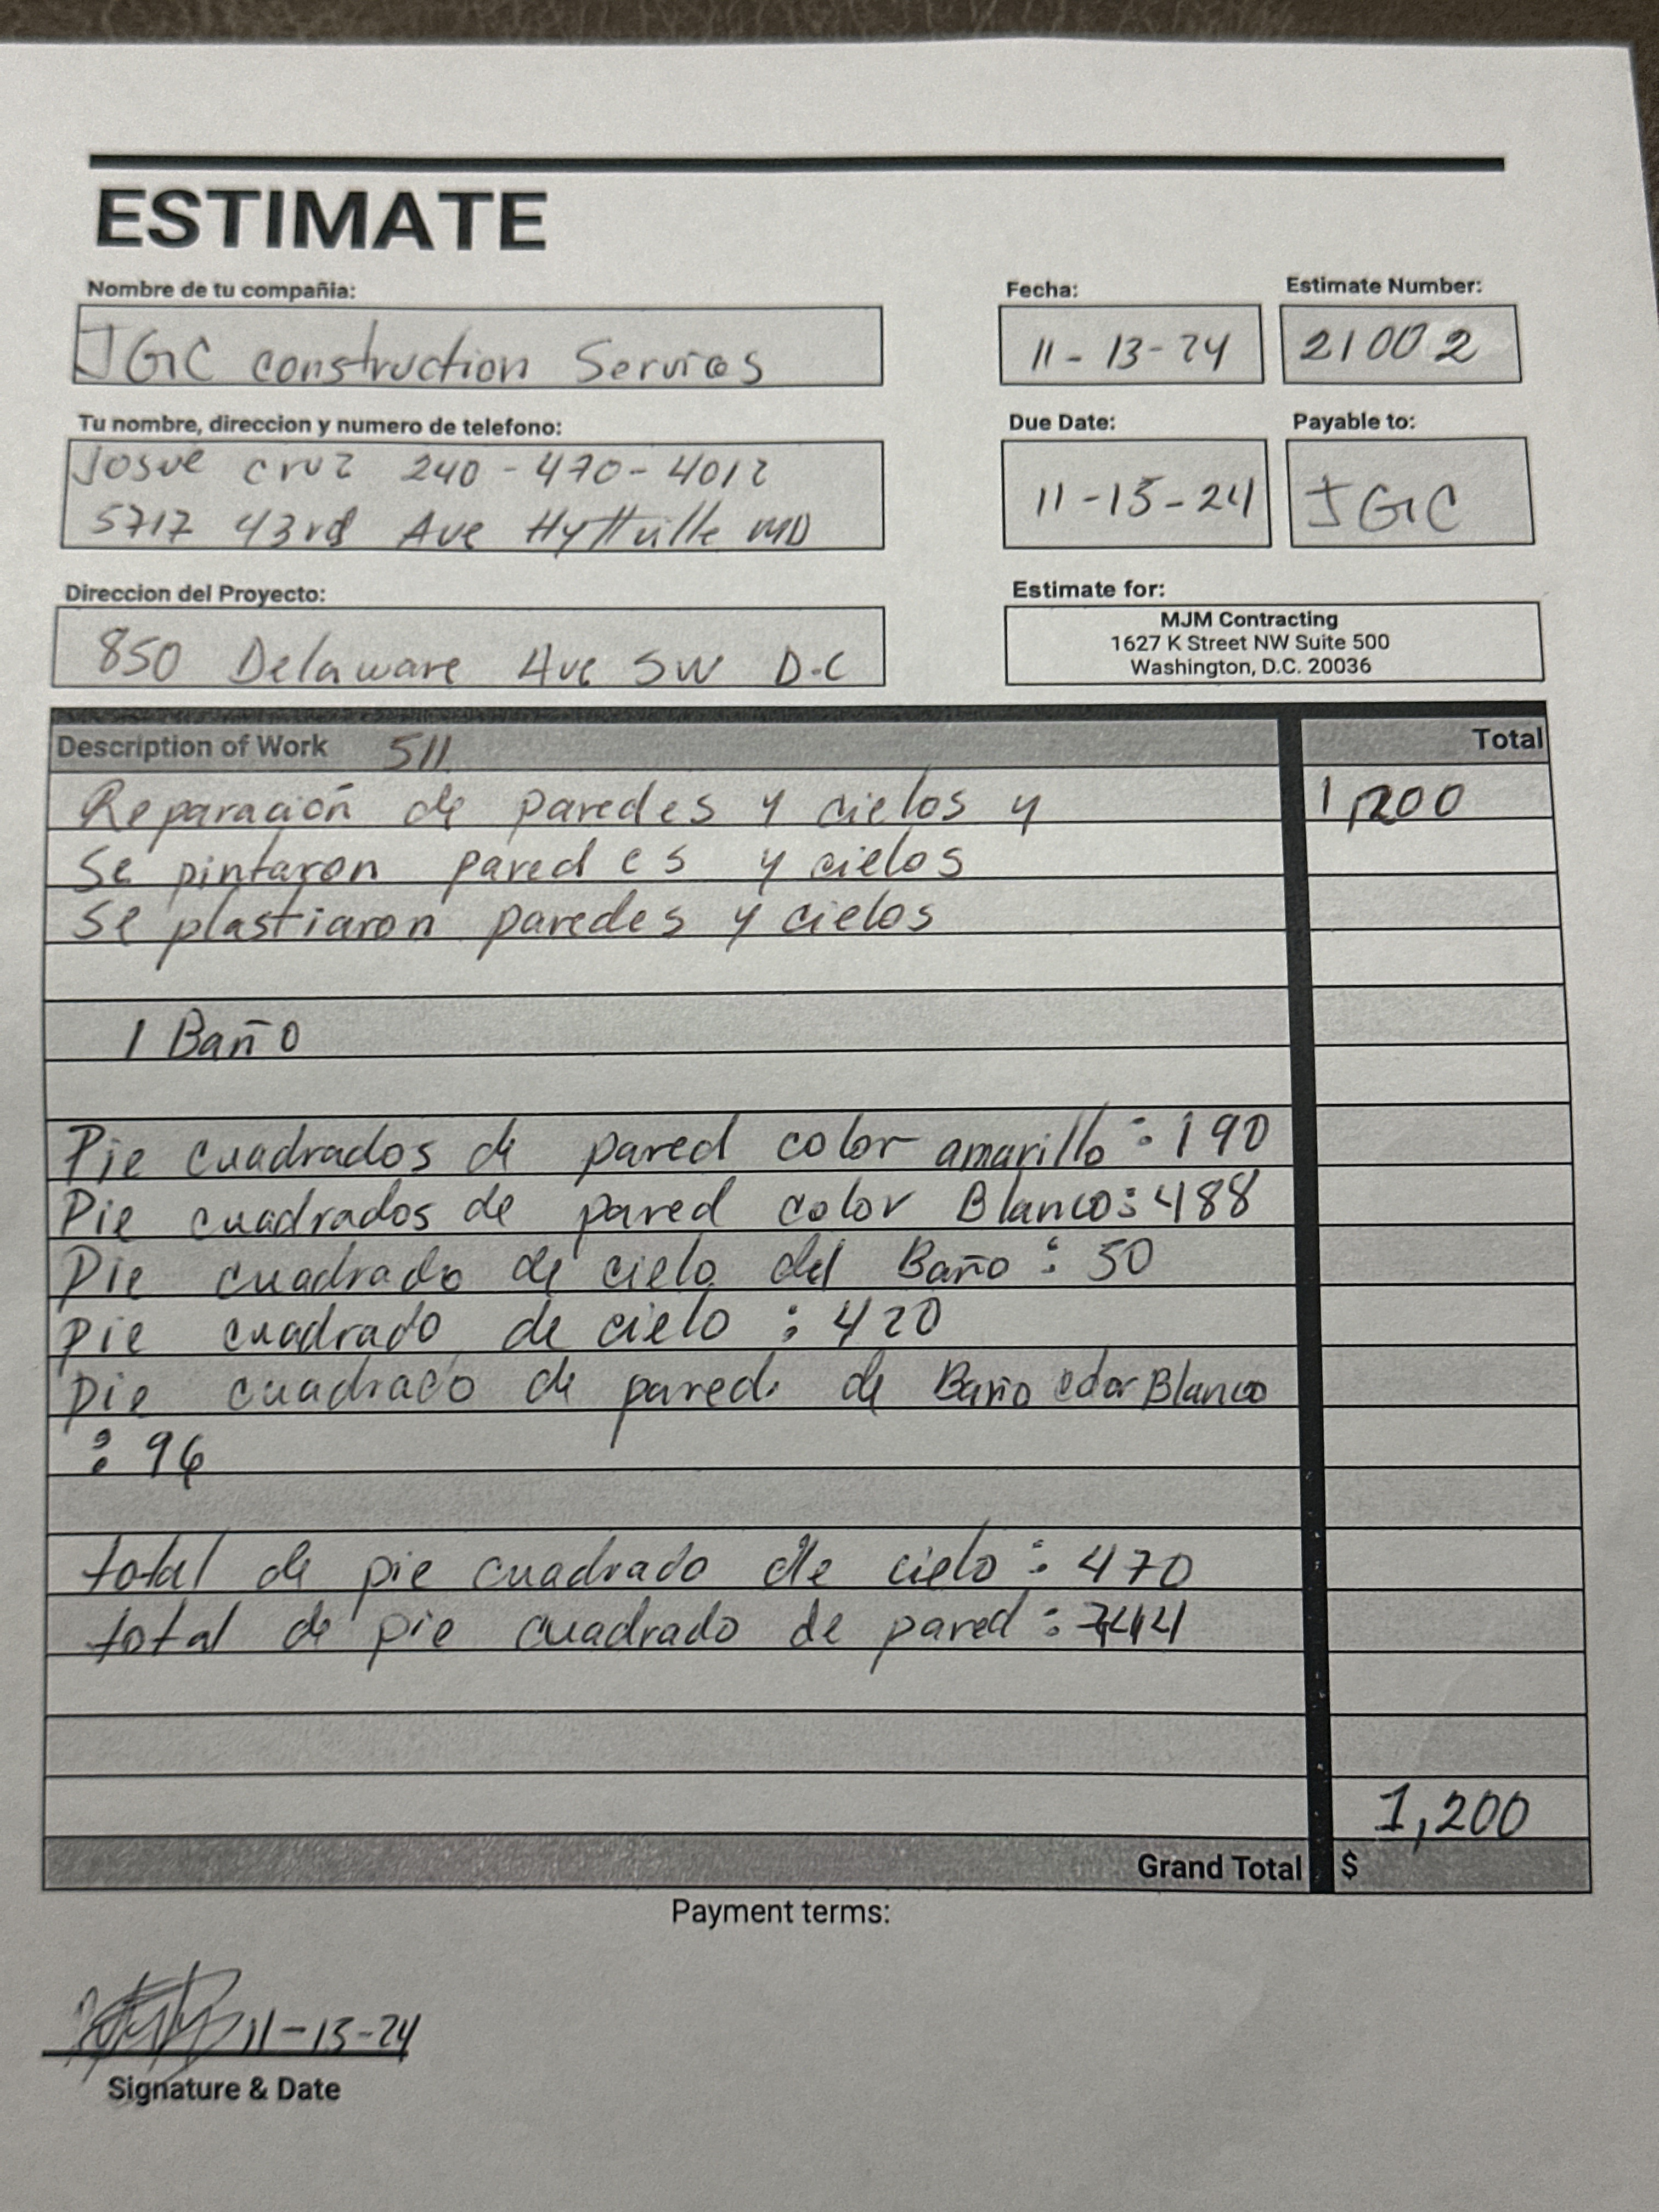 ESTIMATE
Nombre de tu compañia:
JGC construction Services
Fecha:
11-13-24
Estimate Number:
21002
Tu nombre, direccion y numero de telefono:
Josue cruz 240-470-4012
5717 43rd Ave Hyttville MD
Due Date:
11-15-24
Payable to:
JGC
Direccion del Proyecto:
850 Delaware Ave SW D.C
Estimate for:
MJM Contracting
1627 K Street NW Suite 500
Washington, D.C. 20036
Description of Work 511 Total
Reparación de paredes y cielos y 1,200
Se pintaron paredes y cielos
Se plastiaron paredes y cielos
1 Baño
Pie cuadrados de pared color amarillo: 190
Pie cuadrados de pared color Blanco: 488
Pie cuadrado de cielo del Baño: 50
pie cuadrado de cielo: 420
pie cuadrado de pared de Baño color Blanco
: 96
total de pie cuadrado de cielo: 470
total de pie cuadrado de pared: 744
1,200
Grand Total $
Payment terms:
11-13-24
Signature & Date